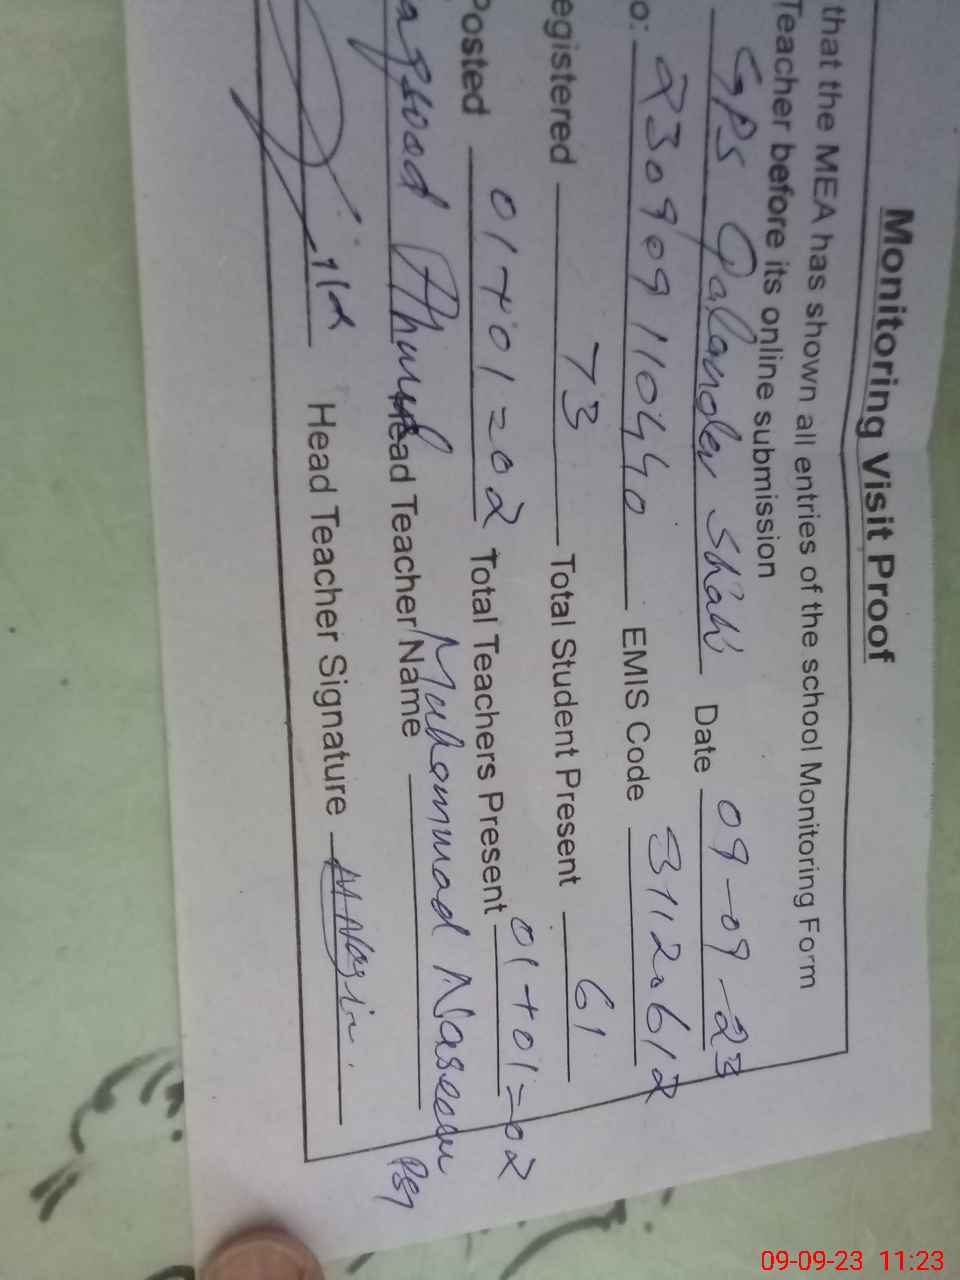 Monitoring Visit Proof
that the MEA has shown all entries of the school Monitoring Form
Teacher before its online submission
GPS Qalander Shah Date 09-09-23
o: 230909110440 EMIS Code 31120612
egistered 73 Total Student Present 61
Posted 01+01=02 Total Teachers Present 01+01=02
aqsood Ahmed Head Teacher Name Muhammad Naseem PST
Head Teacher Signature
09-09-23 11:23